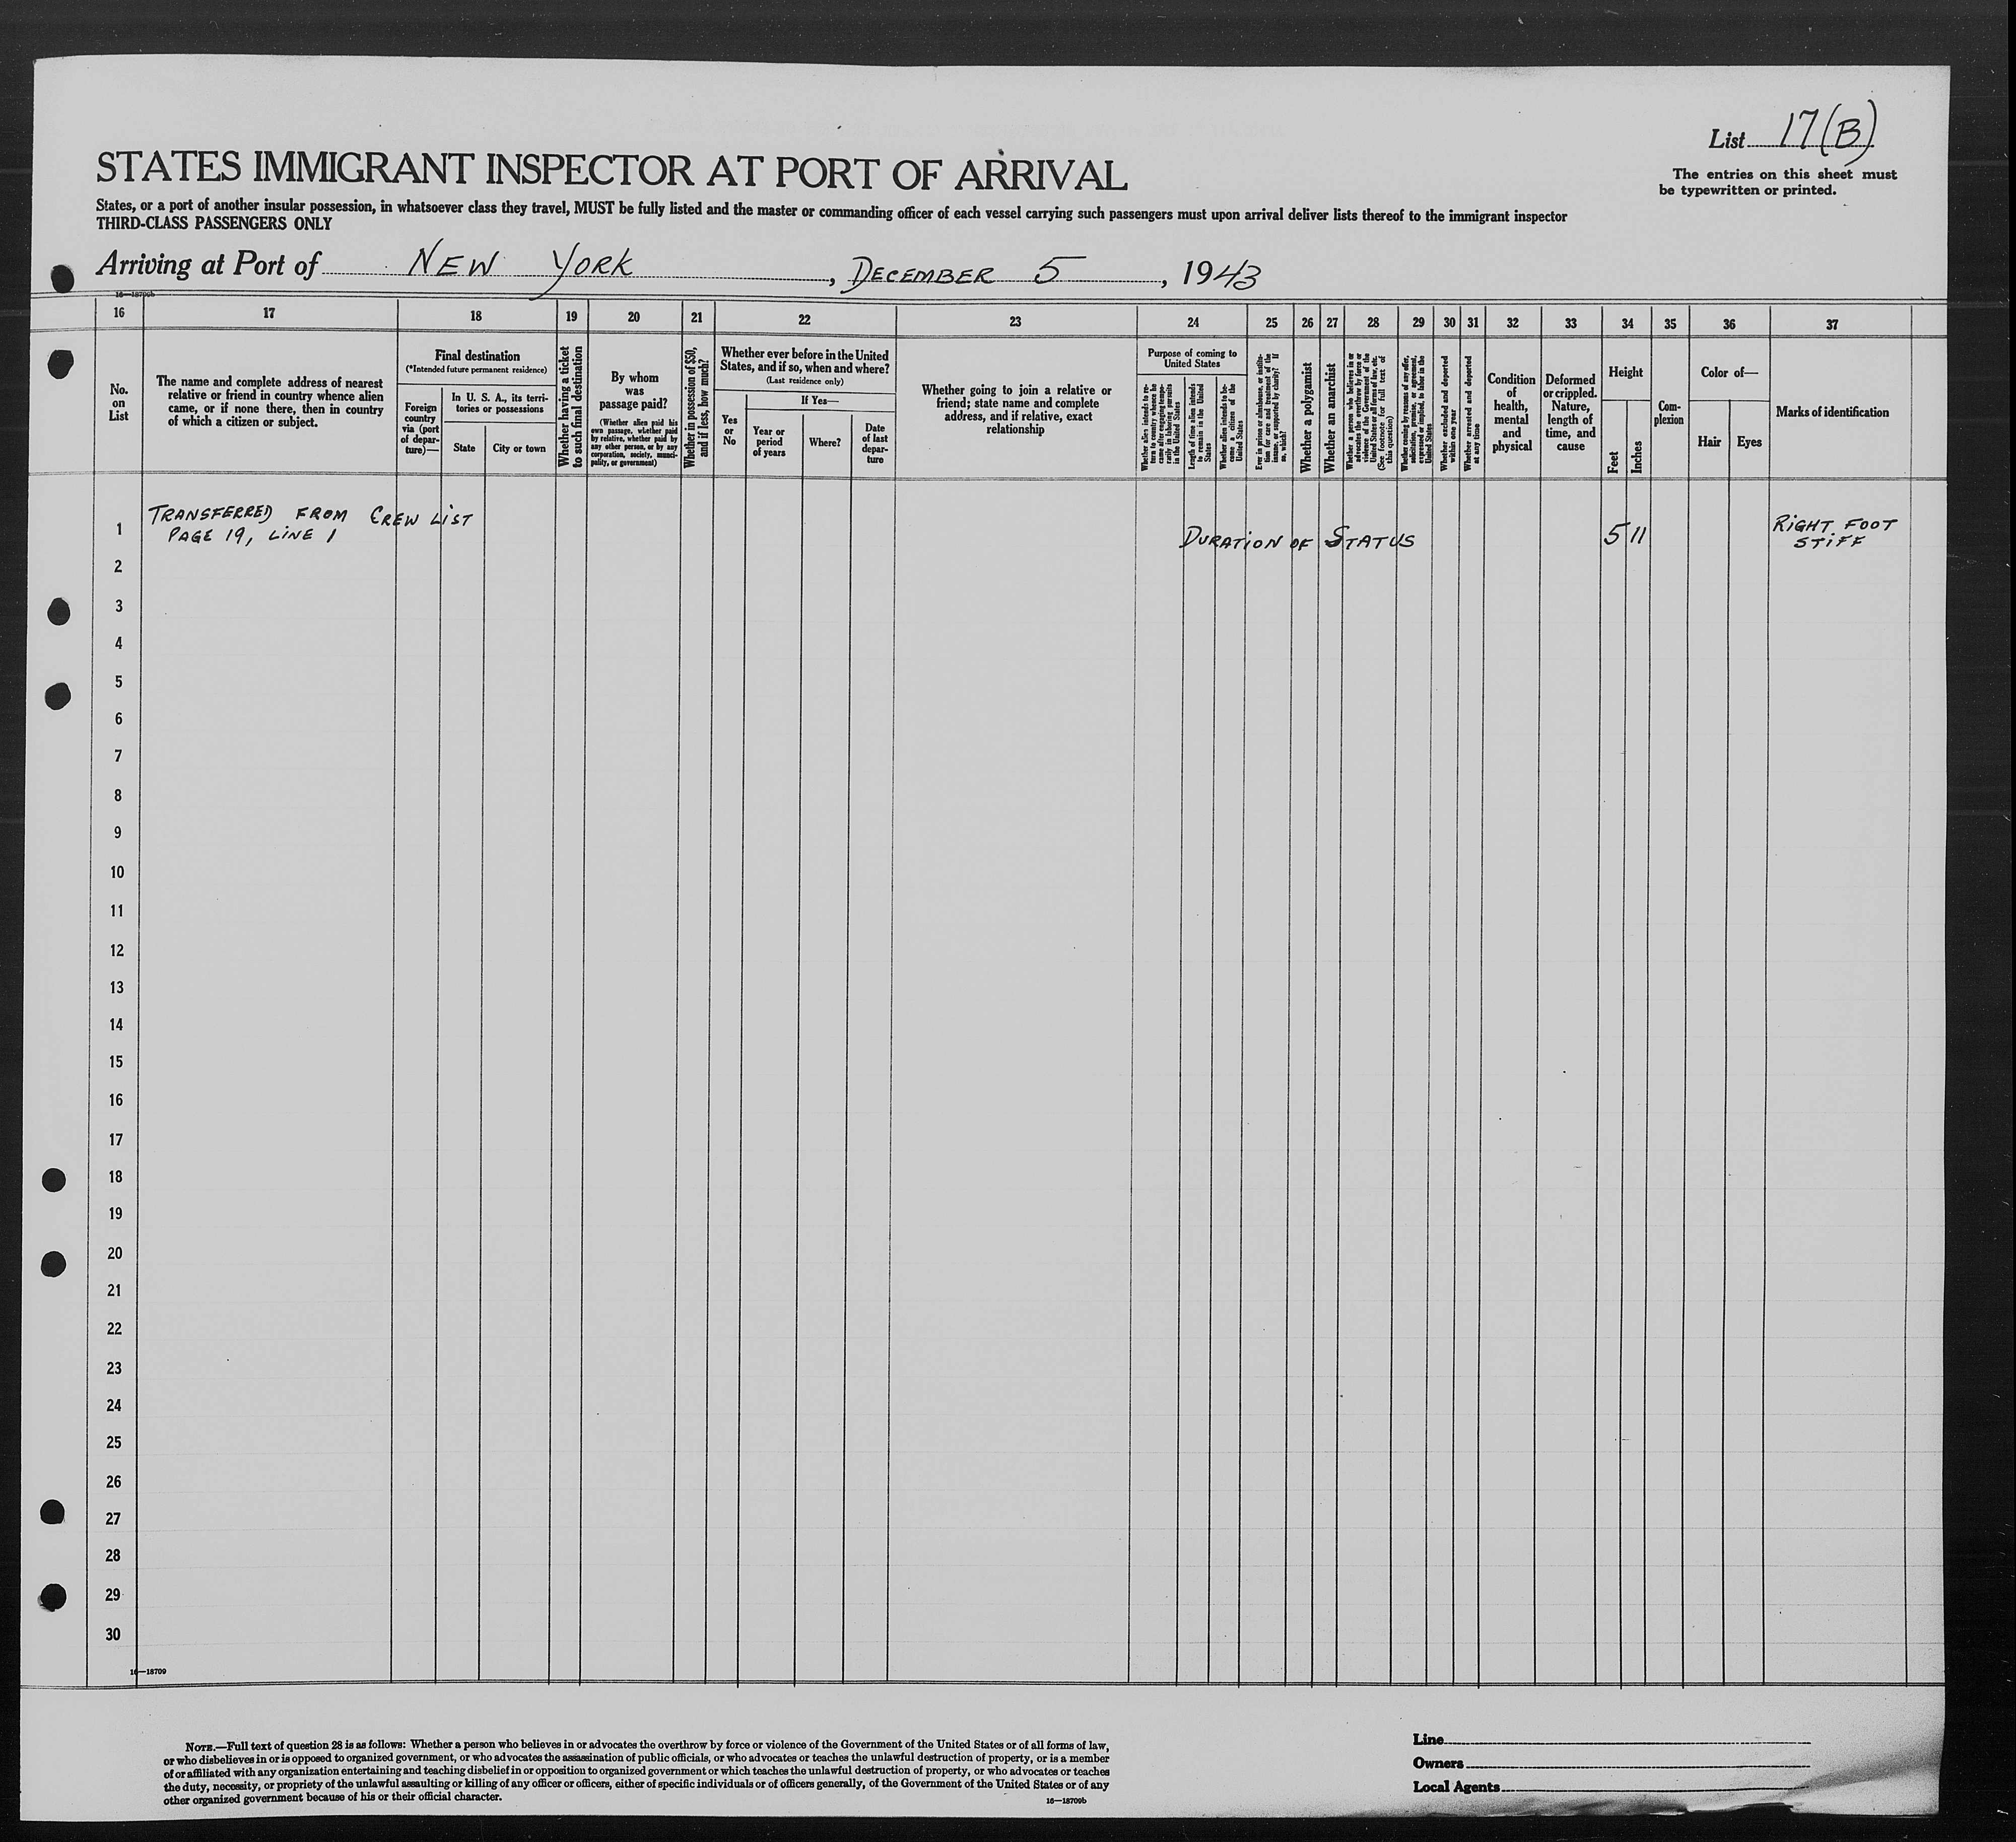 List 17(B)
The entries on this sheet must
be typewritten or printed.
STATES IMMIGRANT INSPECTOR AT PORT OF ARRIVAL
States, or a port of another insular possession, in whatsoever class they travel, MUST be fully listed and the master or commanding officer of each vessel carrying such passengers must upon arrival deliver lists thereof to the immigrant inspector
THIRD-CLASS PASSENGERS ONLY
Arriving at Port of NEW YORK, DECEMBER 5, 1943
16—18709b
16 17 18 19 20 21 22 23 24 25 26 27 28 29 30 31 32 33 34 35 36 37
No.
on
List
The name and complete address of nearest
relative or friend in country whence alien
came, or if none there, then in country
of which a citizen or subject.
Final destination
(*Intended future permanent residence)
Foreign
country
via (port
of depar-
ture)—
In U. S. A., its terri-
tories or possessions
State
City or town
Whether having a ticket
to such final destination
By whom
was
passage paid?
(Whether alien paid his
own passage, whether paid
by relative, whether paid by
any other person, or by any
corporation, society, munici-
pality, or government)
Whether in possession of $50,
and if less, how much?
Whether ever before in the United
States, and if so, when and where?
(Last residence only)
Yes
or
No
If Yes—
Year or
period
of years
Where?
Date
of last
depar-
ture
Whether going to join a relative or
friend; state name and complete
address, and if relative, exact
relationship
Purpose of coming to
United States
Whether alien intends to re-
turn to country whence he
came after engaging tempo-
rarily in laboring pursuits
in the United States
Length of time alien intends
to remain in the United
States
Whether alien intends to be-
come a citizen of the
United States
Ever in prison or almshouse, or institu-
tion for care and treatment of the
insane, or supported by charity? If
so, which?
Whether a polygamist
Whether an anarchist
Whether a person who believes in or
advocates the overthrow by force or
violence of the Government of the
United States or all forms of law, etc.
(See footnote for full text of
this question)
Whether coming by reasons of any offer,
solicitation, promise, or agreement,
expressed or implied, to labor in the
United States
Whether excluded and deported
within one year
Whether arrested and deported
at any time
Condition
of
health,
mental
and
physical
Deformed
or crippled.
Nature,
length of
time, and
cause
Height
Feet
Inches
Com-
plexion
Color of—
Hair
Eyes
Marks of identification
1 TRANSFERRED FROM CREW LIST
PAGE 19, LINE 1
DURATION OF STATUS
5 11
RIGHT FOOT
STIFF
2
3
4
5
6
7
8
9
10
11
12
13
14
15
16
17
18
19
20
21
22
23
24
25
26
27
28
29
30
16—18709
NOTE.—Full text of question 28 is as follows: Whether a person who believes in or advocates the overthrow by force or violence of the Government of the United States or of all forms of law,
or who disbelieves in or is opposed to organized government, or who advocates the assassination of public officials, or who advocates or teaches the unlawful destruction of property, or is a member
of or affiliated with any organization entertaining and teaching disbelief in or opposition to organized government or which teaches the unlawful destruction of property, or who advocates or teaches
the duty, necessity, or propriety of the unlawful assaulting or killing of any officer or officers, either of specific individuals or of officers generally, of the Government of the United States or of any
other organized government because of his or their official character.
16—18709b
Line
Owners
Local Agents